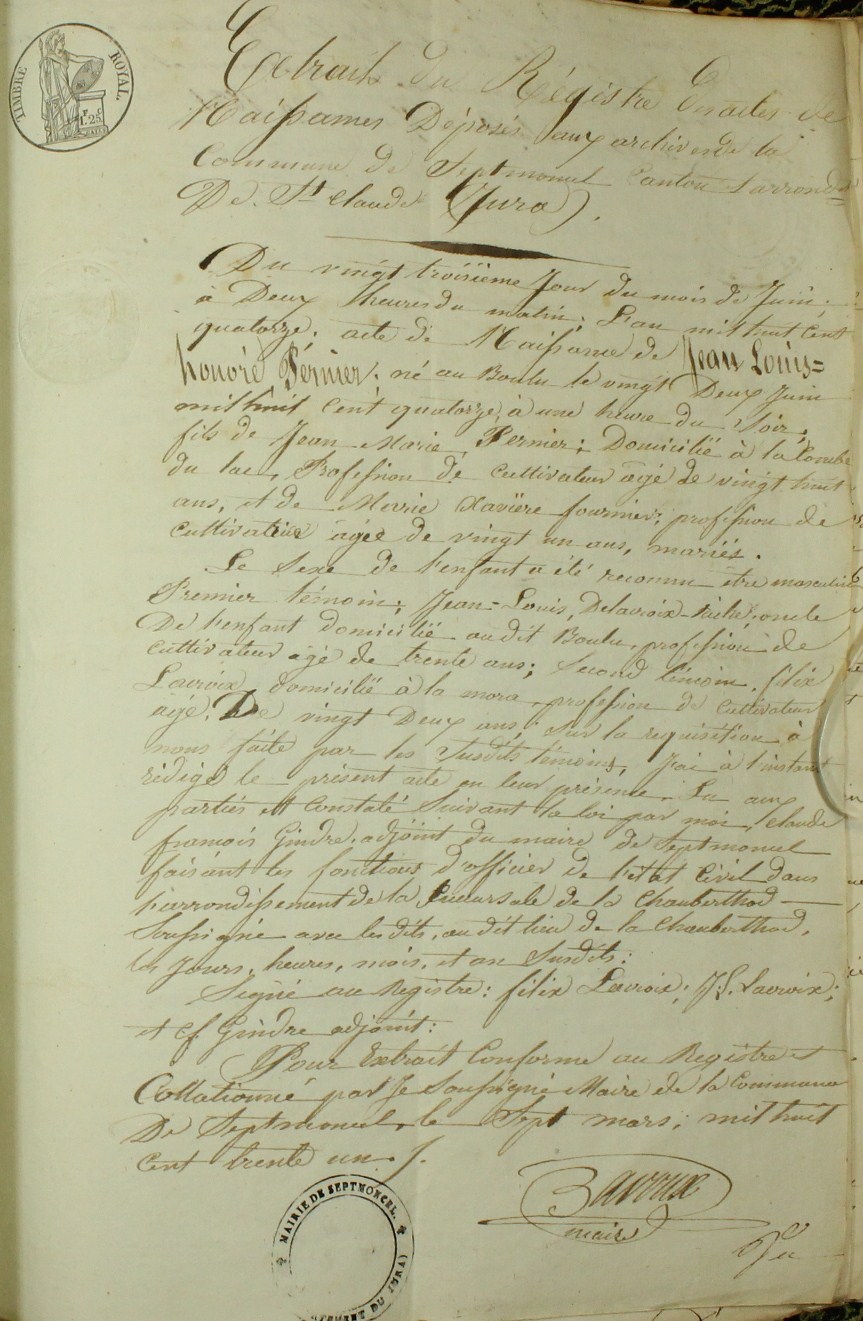 TIMBRE ROYAL.
F. C
1.25
Extrait du Régistre des actes de
Naissances Déposés aux archives de la
Commune de Septmoncel Canton & arrond
De St Claude (Jura).
Du vingt troisième Jour du mois de Juin,
à Deux heures du matin; L'an mil huit cent
quatorze; acte de Naissance de Jean Louis=
honoré Pernier; né au Boulu le vingt Deux Juin
mil huit cent quatorze, à une heure du Soir,
fils de Jean Marie Pernier; Domicilié à la Combe
du lac, Profession de Cultivateur agé de vingt huit
ans, et de Marie Xavière fournier, profession de
Cultivatrice agée de vingt un ans, mariés.
Le Sexe de l'enfant a été reconnu etre masculin
Premier témoin; Jean=Louis, Delacroix-riche, oncle
De l'enfant domicilié audit Boulu, profession de
cultivateur agé de trente ans; Second témoin, félix
Lacroix domicilié à la mora, profession de Cultivateur
agé De vingt Deux ans; Sur la requisition à
nous faite par les Susdits témoins, J'ai à l'instant
rédigé le présent acte en leur présence. Lu aux
parties et Constaté Suivant la loi par moi, Claude
françois Gindre, adjoint du maire de Septmoncel
faisant les fonctions d'officier de l'état Civil dans
l'arrondissement de la Succursale de la Chauberthod
Soussigné avec lesdits, audit lieu de la Chauberthod,
les Jours, heures, mois, et an Susdits:
Signé au Registre: félix Lacroix; J. L. Lacroix;
et Cf Gindre adjoint:
Pour Extrait Conforme au Registre et
Collationné par Je Soussigné Maire de la Commune
De Septmoncel, le Sept mars; mil huit
cent trente un.
Bavoux
maire
Vu
MAIRIE DE SEPTMONCEL.
(JURA)